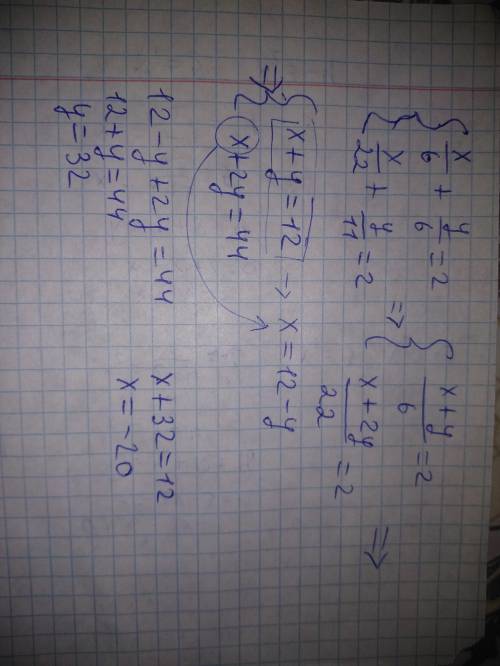 { x/6 + y/6 = 2
{ x/22 + y/11 = 2
=> { (x+y)/6 = 2
{ (x+2y)/22 = 2
=>
=> { x+y=12 → x=12-y
{ x+2y=44
12-y+2y=44
12+y=44
y=32
x+32=12
x=-20